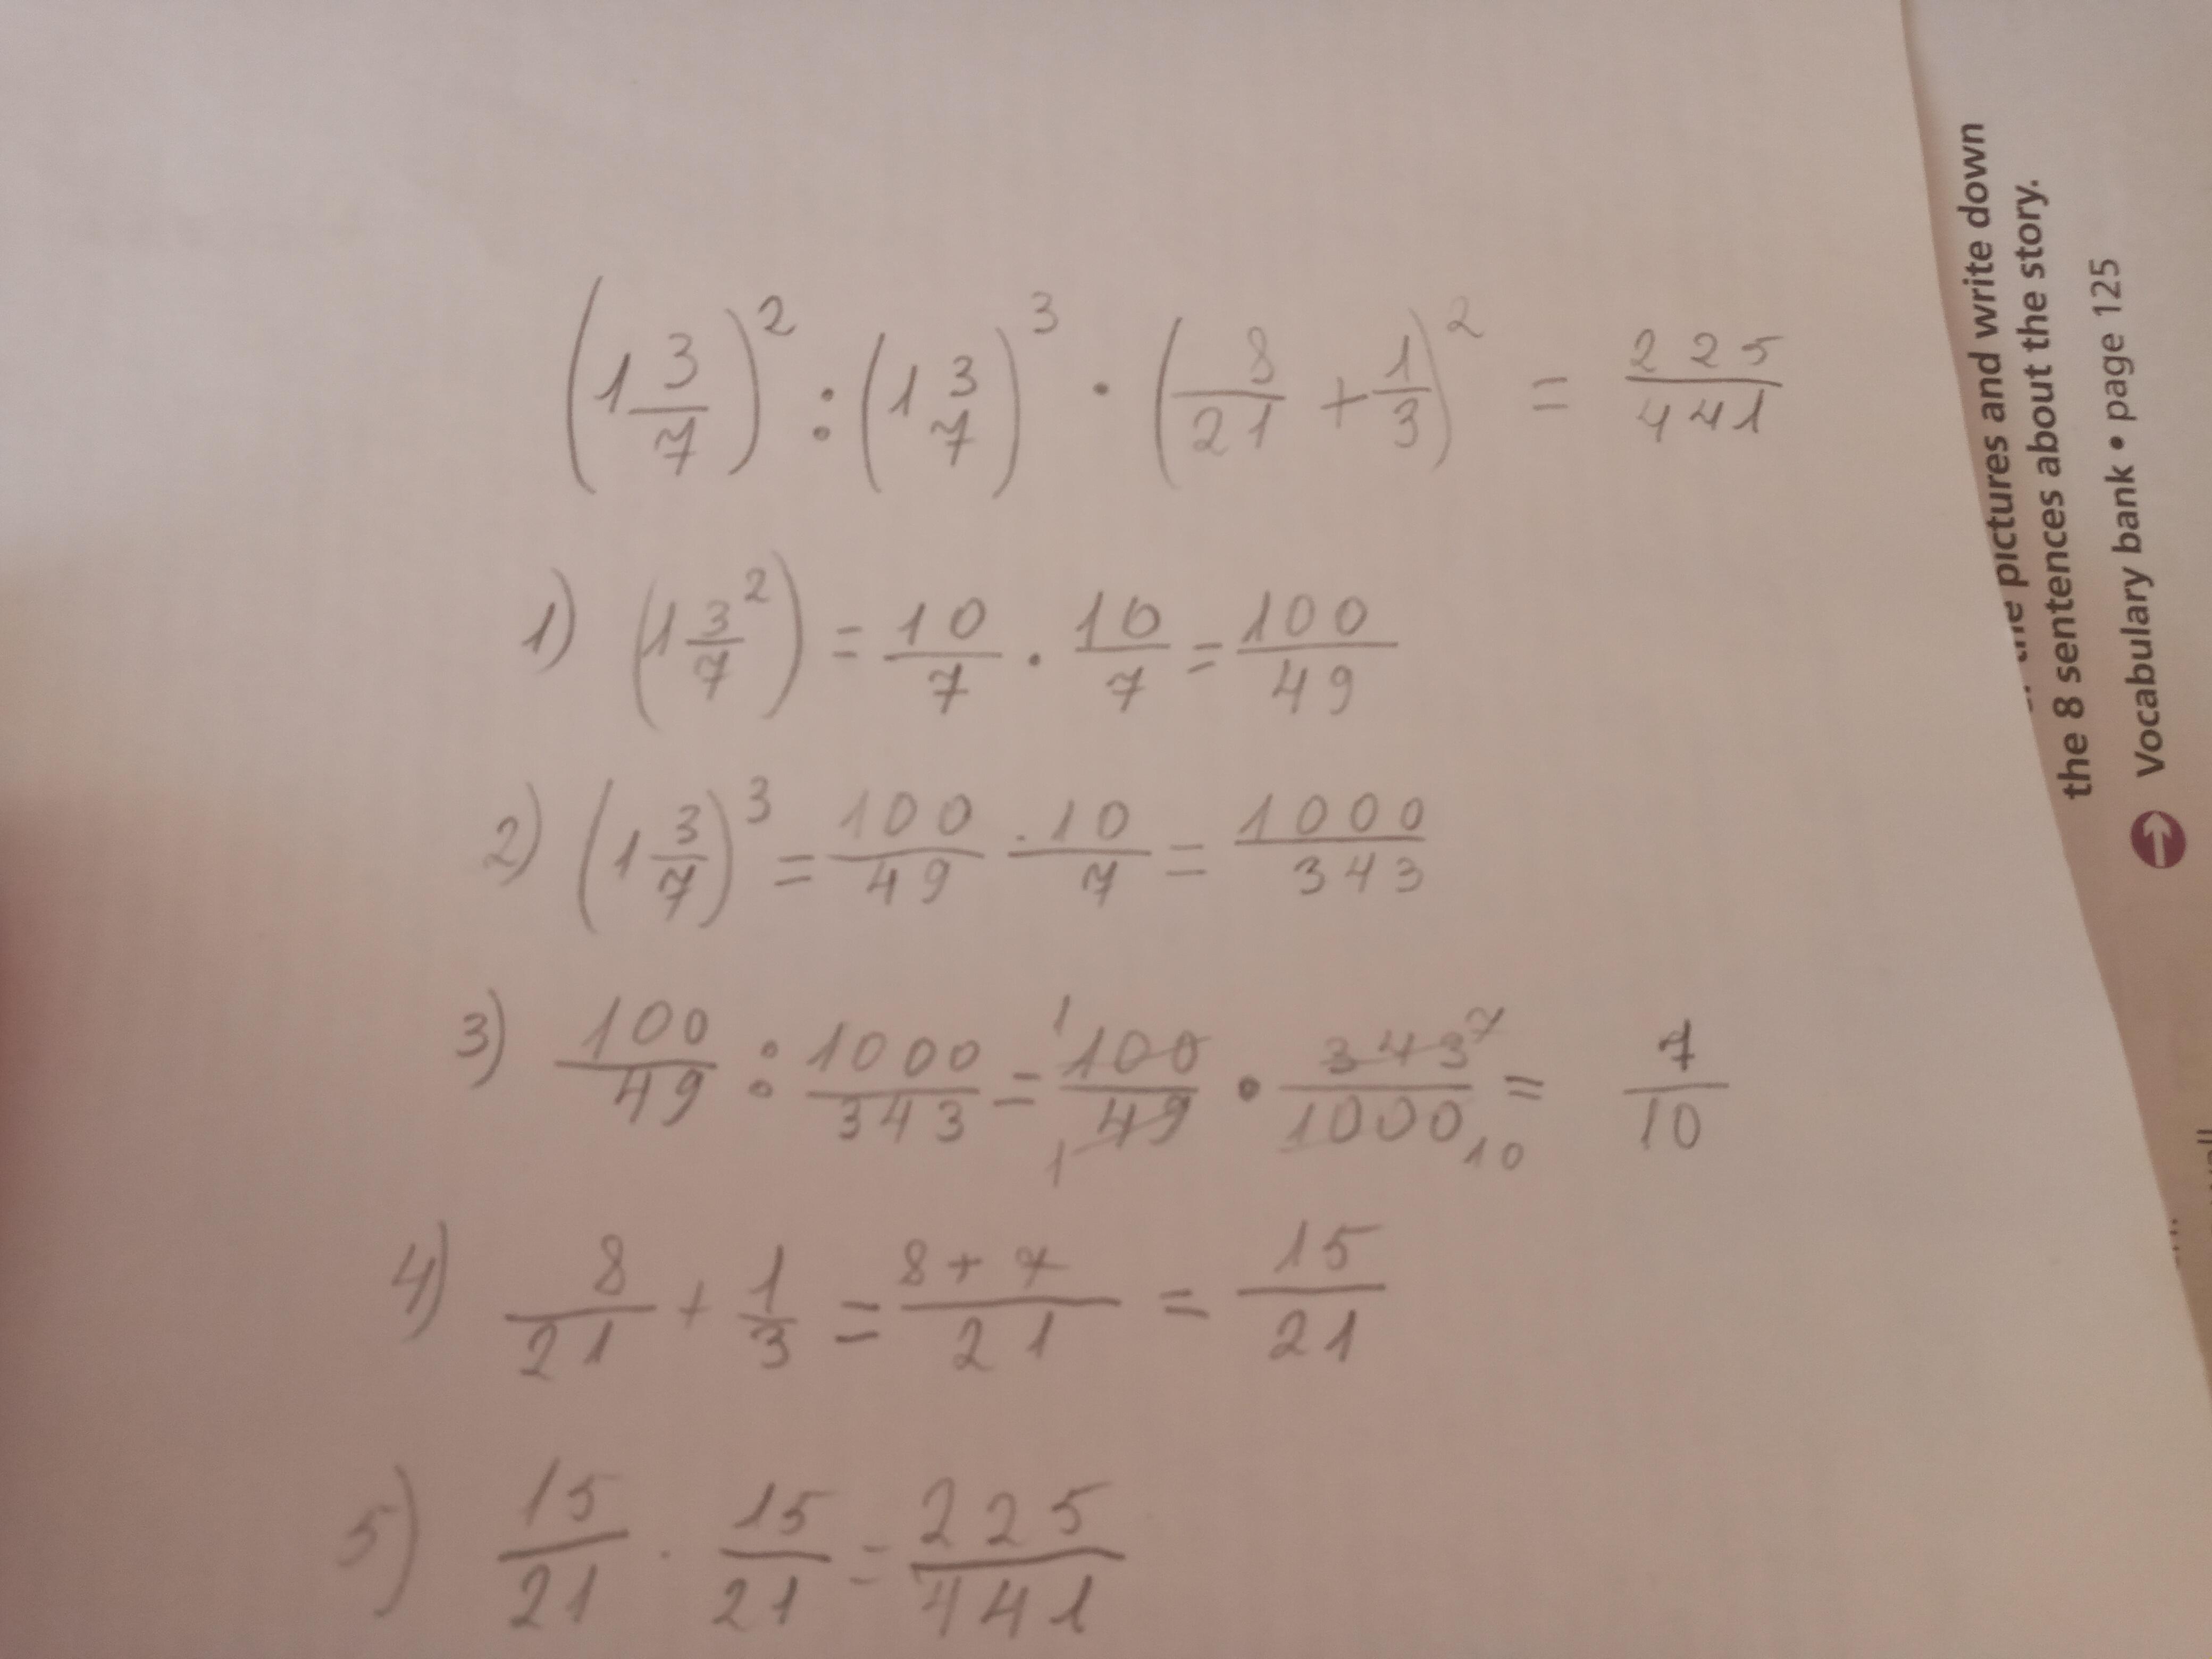 (1 3/7)² : (1 3/7)³ · (8/21 + 1/3)² = 225/441
1) (1 3/7²) = 10/7 · 10/7 = 100/49
2) (1 3/7)³ = 100/49 · 10/7 = 1000/343
3) 100/49 : 1000/343 = 1 100/49 1 · 343 7/1000 10 = 7/10
4) 8/21 + 1/3 = 8+7/21 = 15/21
5) 15/21 · 15/21 = 225/441
the pictures and write down
the 8 sentences about the story.
Vocabulary bank • page 125